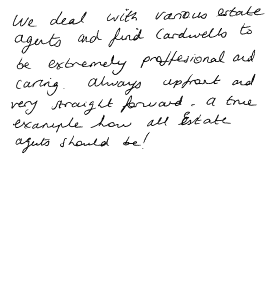 We deal with various estate
agents and find Cardwells to
be extremely proffesional and
caring. Always upfront and
very straight forward. A true
example how all Estate
agents should be!